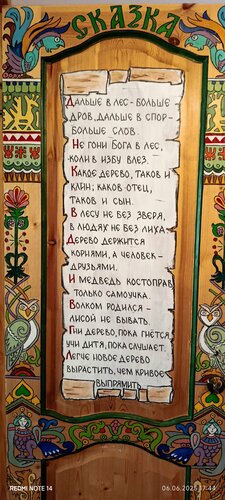 СКАЗКА
Дальше в лес - больше
дров, дальше в спор -
больше слов.
Не гони Бога в лес,
коли в избу влез.
Какое дерево, таков и
клин; каков отец,
таков и сын.
В лесу не без зверя,
в людях не без лиха.
Дерево держится
корнями, а человек -
друзьями.
И медведь костоправ,
только самоучка.
Волком родился -
лисой не бывать.
Гни дерево, пока гнётся,
учи дитя, пока слушает.
Легче новое дерево
вырастить, чем кривое
выпрямить.
REDMI NOTE 14
06.06.2025 17:44